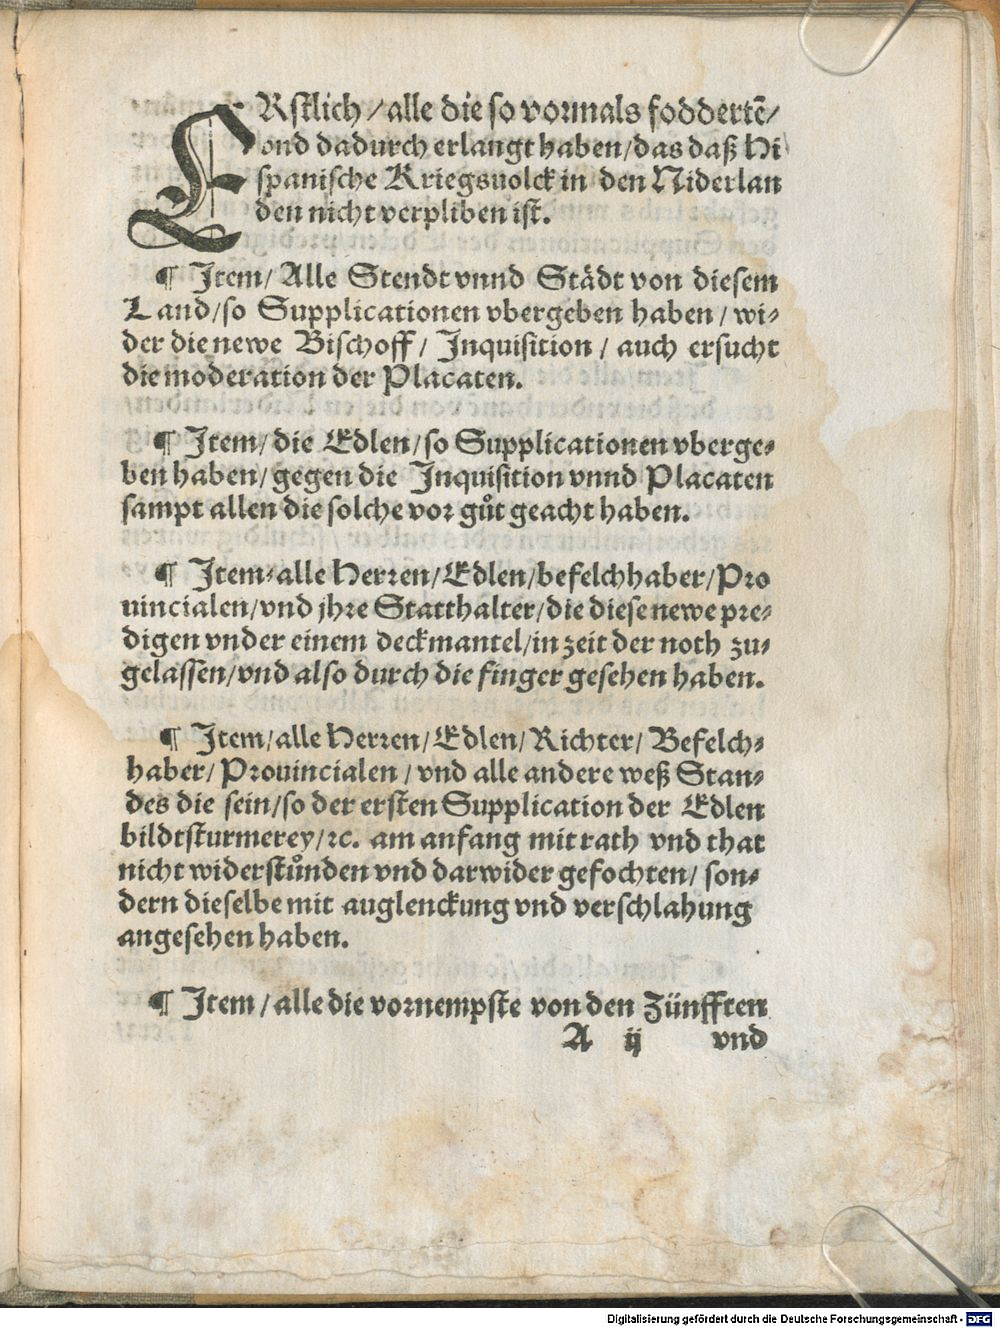 ERstlich / alle die so vormals foddertē /
vnd dadurch erlangt haben / das daß Hi
spanische Kriegsuolck in den Niderlan
den nicht verpliben ist.
¶ Item / Alle Stendt vnnd Städt von diesem
Land / so Supplicationen vbergeben haben / wi⸗
der die newe Bischoff / Inquisition / auch ersucht
die moderation der Placaten.
¶ Item / die Edlen / so Supplicationen vberge⸗
ben haben / gegen die Inquisition vnnd Placaten
sampt allen die solche vor gůt geacht haben.
¶ Item⸗alle Herren / Edlen / befelchhaber / Pro
uincialen / vnd jhre Statthalter / die diese newe pre⸗
digen vnder einem deckmantel / in zeit der noth zu⸗
gelassen / vnd also durch die finger gesehen haben.
¶ Item / alle Herren / Edlen / Richter / Befelch⸗
haber / Prouincialen / vnd alle andere weß Stan⸗
des die sein / so der ersten Supplication der Edlen
bildtsturmerey / ꝛc. am anfang mit rath vnd that
nicht widerstůnden vnd darwider gefochten / son⸗
dern dieselbe mit auglenckung vnd verschlahung
angesehen haben.
¶ Item / alle die vornempste von den Zünfften
A ij vnd
Digitalisierung gefördert durch die Deutsche Forschungsgemeinschaft - DFG